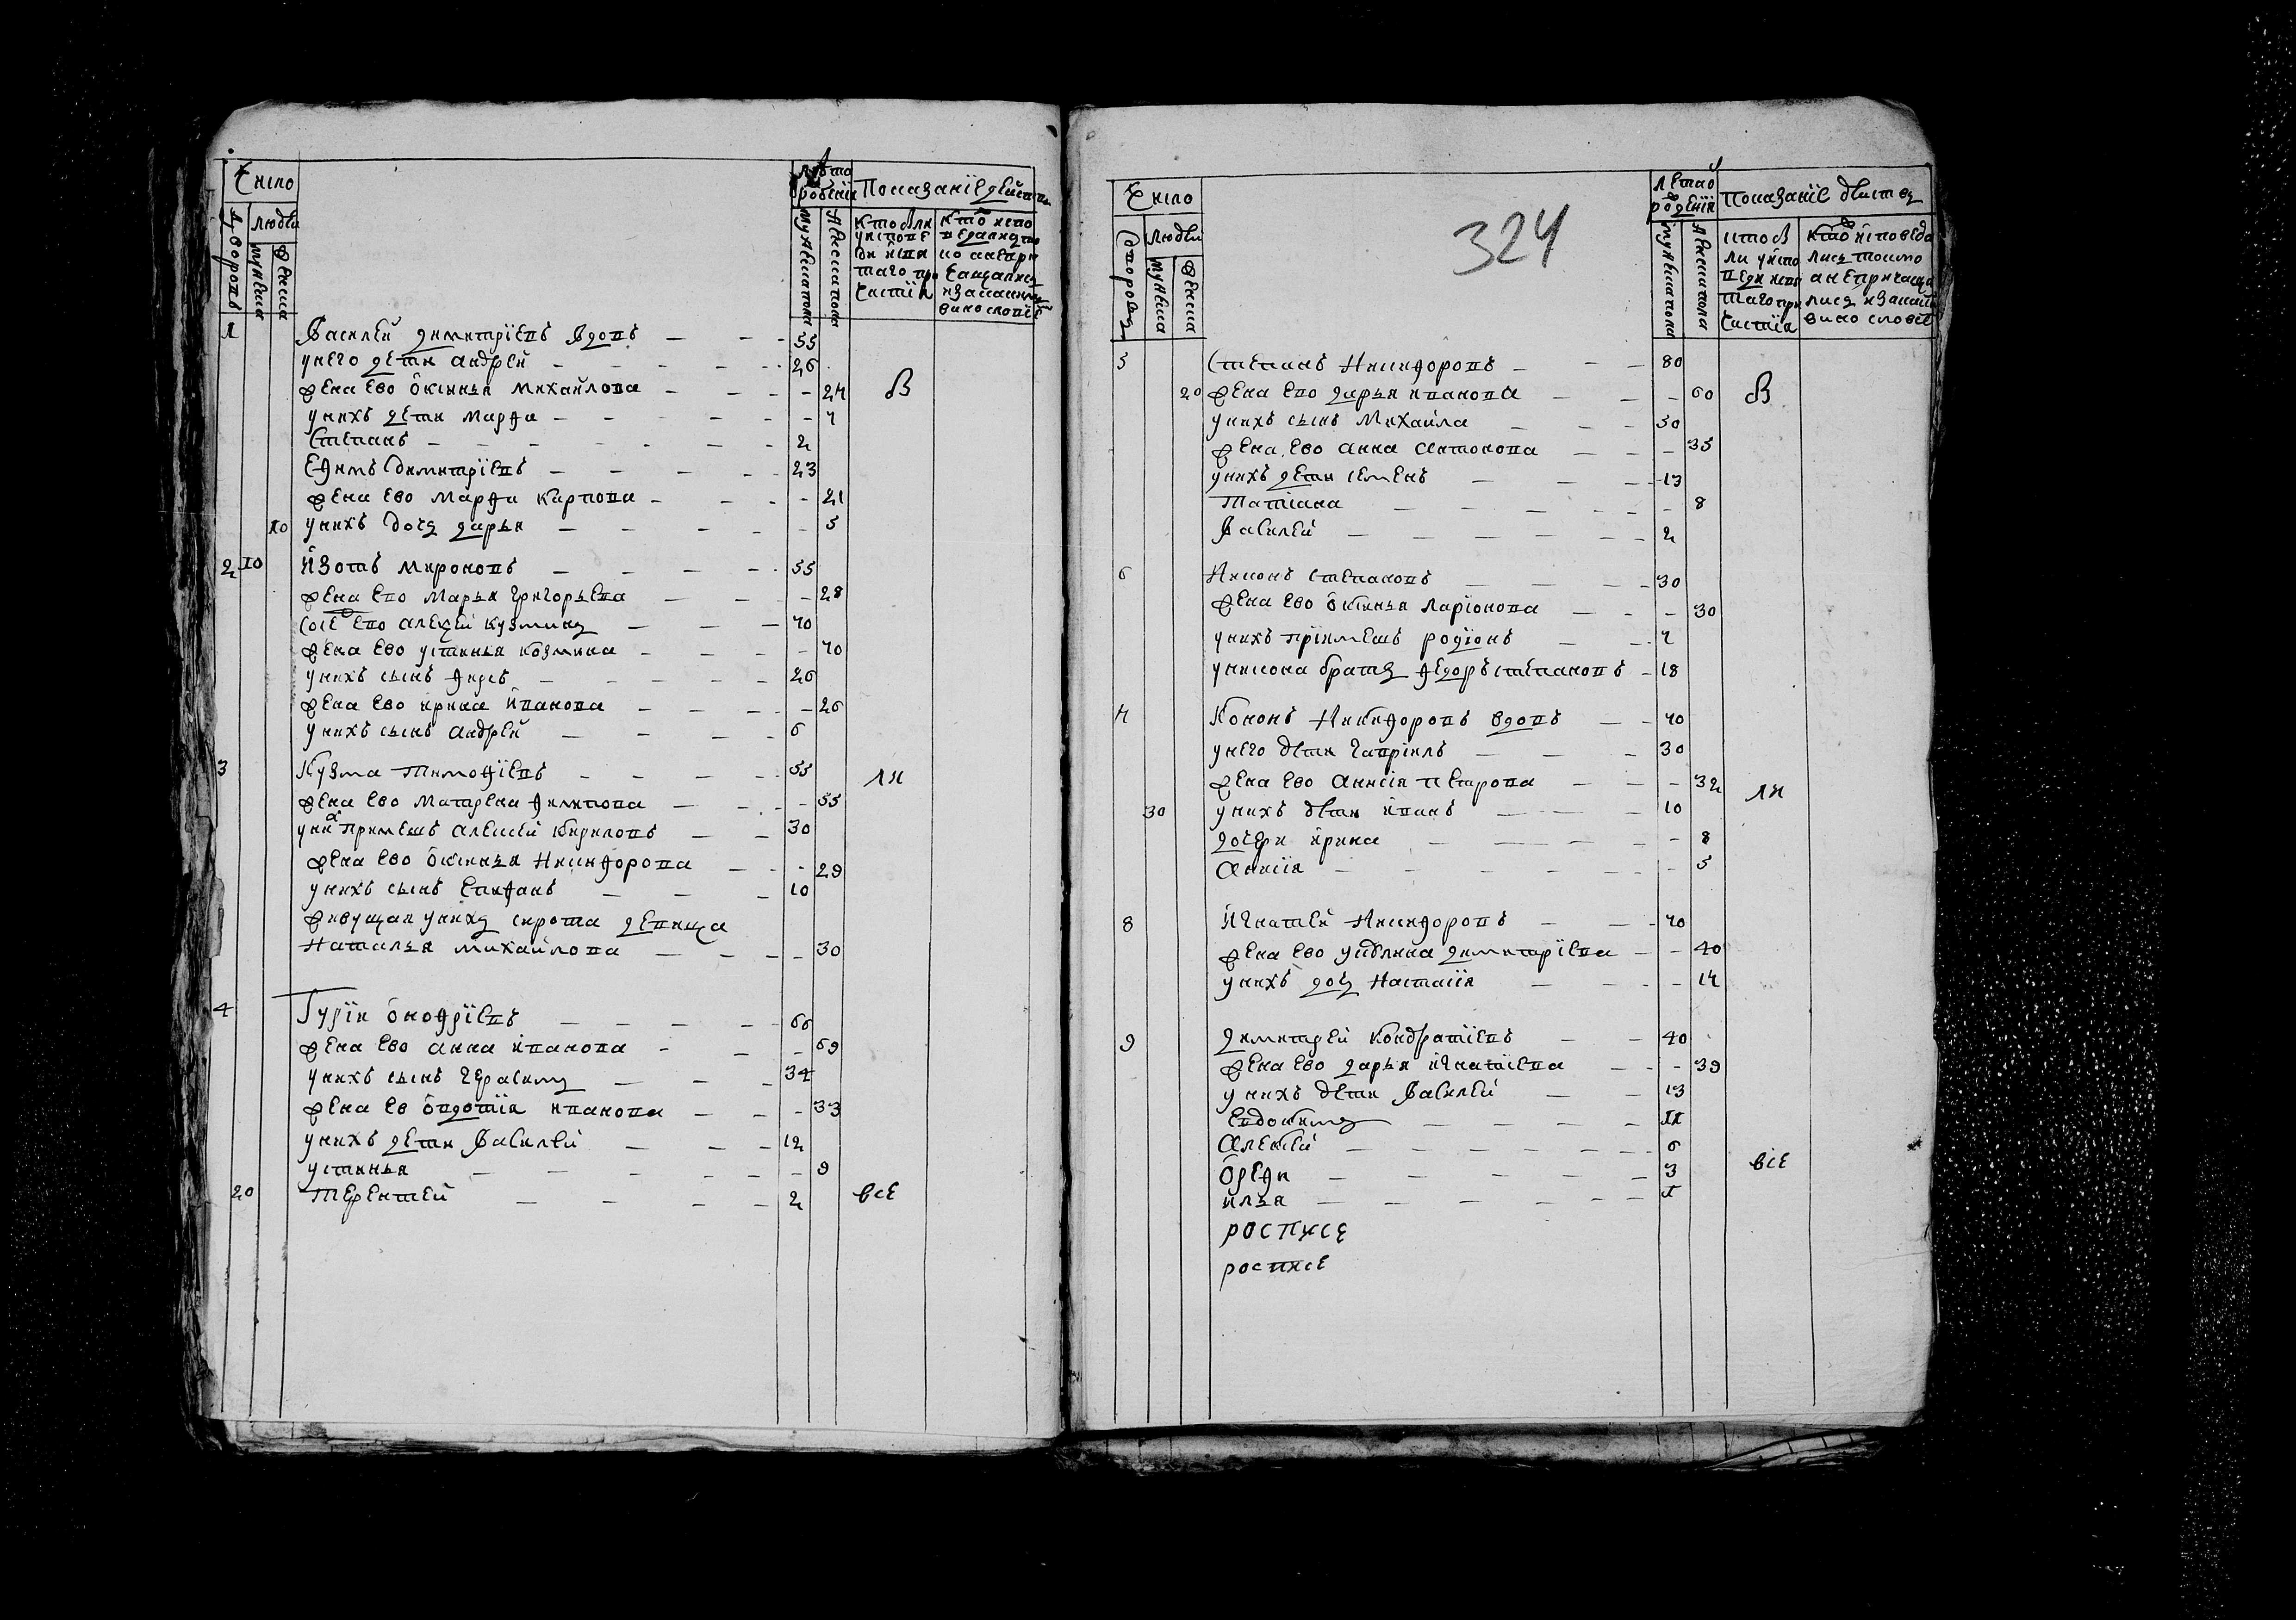 Число
дворовъ
людеи
мужеска
женска
лѣто рождения
мужеска пола
женска пола
Показанїе действъ
Кто были у исповеди и святаго причастїя
Кто исповедались токмо а не причащались и за какимъ винословїемъ
1 Василеи Димитрїевъ вдовъ 55
у него дети Андреи 26
жена ево Окинья Михаилова 24 в
у нихъ дети Марфа 7
Степанъ 2
Ефимъ Димитрїевъ 23
жена ево Марфа Карпова 21
10 у нихъ дочь Дарья 5
2 10 Изотъ Мироновъ 55
жена ево Марья Григорьева 28
Алексеи Кузминъ 70
жена ево Устинья Козмина 70
у нихъ сынъ 26
жена ево Ирина Иванова 26
у нихъ сынъ Андреи 6
3 Кузма Тимофїевъ 55 ли
жена ево Матрена Филипова 55
у них примешъ Алексеи Кириловъ 30
жена ево Окинья Никифорова 29
у нихъ сынъ Епифанъ 10
живущая у нихъ сирота девица
Наталья Михаилова 30
4 Гурїи Онофрїевъ 66
жена ево Анна Иванова 69
у нихъ сынъ Герасимъ 34
жена ев Овдотїя Иванова 33
у нихъ дети Василеи 12
Устинья 9
20 Терентеи 2 все
324
Число
дворовъ
людеи
мужеска
женска
лета рожденїя
мужеска пола
женска пола
Показанїе действъ
кто были у исповеди и святаго причастїя
кто исповедались токмо а не причащались и за какимъ винословїе
5 Степанъ Никифоровъ 80
20 жена ево Дарья Иванова 60 в
у нихъ сынъ Михаила 30
жена ево Анна Антонова 35
у нихъ дети Семенъ 13
Татїана 8
Василеи 2
6 Никонъ Степановъ 30
жена ево Окинья Ларїонова 30
у нихъ прїимешъ Родїонъ 7
у Никона братъ Федоръ Степановъ 18
7 Кононъ Никифоровъ вдовъ 70
у него дети Гаврїилъ 30
жена ево Анисїя Петрова 32 ли
30 у нихъ дети Иванъ 10
дочери Ирина 8
Анисїя 5
8 Игнатеи Никифоровъ 70
жена ево Ульяна Димитрїева 40
у нихъ дочь Настасїя 14
9 Димитреи Кондратїевъ 40
жена ево Дарья Игнатїева 39
у нихъ дети Василеи 13
Евдокимъ 11
Алексеи 6
Орефи 3 все
Илья 1
росписе
росписе